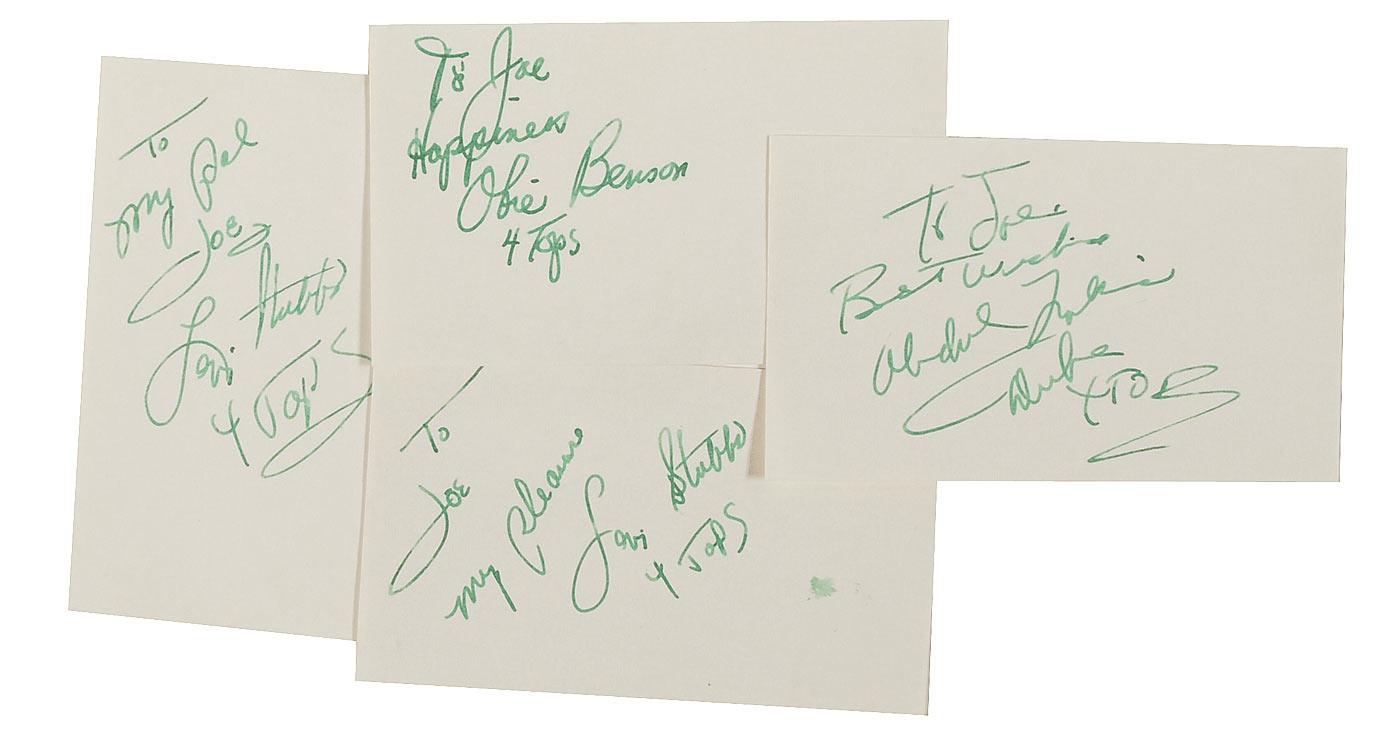 To
my Pal
Joe
Levi Stubbs
4 Tops
To Joe
Happiness
Obie Benson
4 Tops
To
Joe
my pleasure
Levi Stubbs
4 Tops
To Joe
Best wishes
Abdul Fakir
Duke
4 TOPS